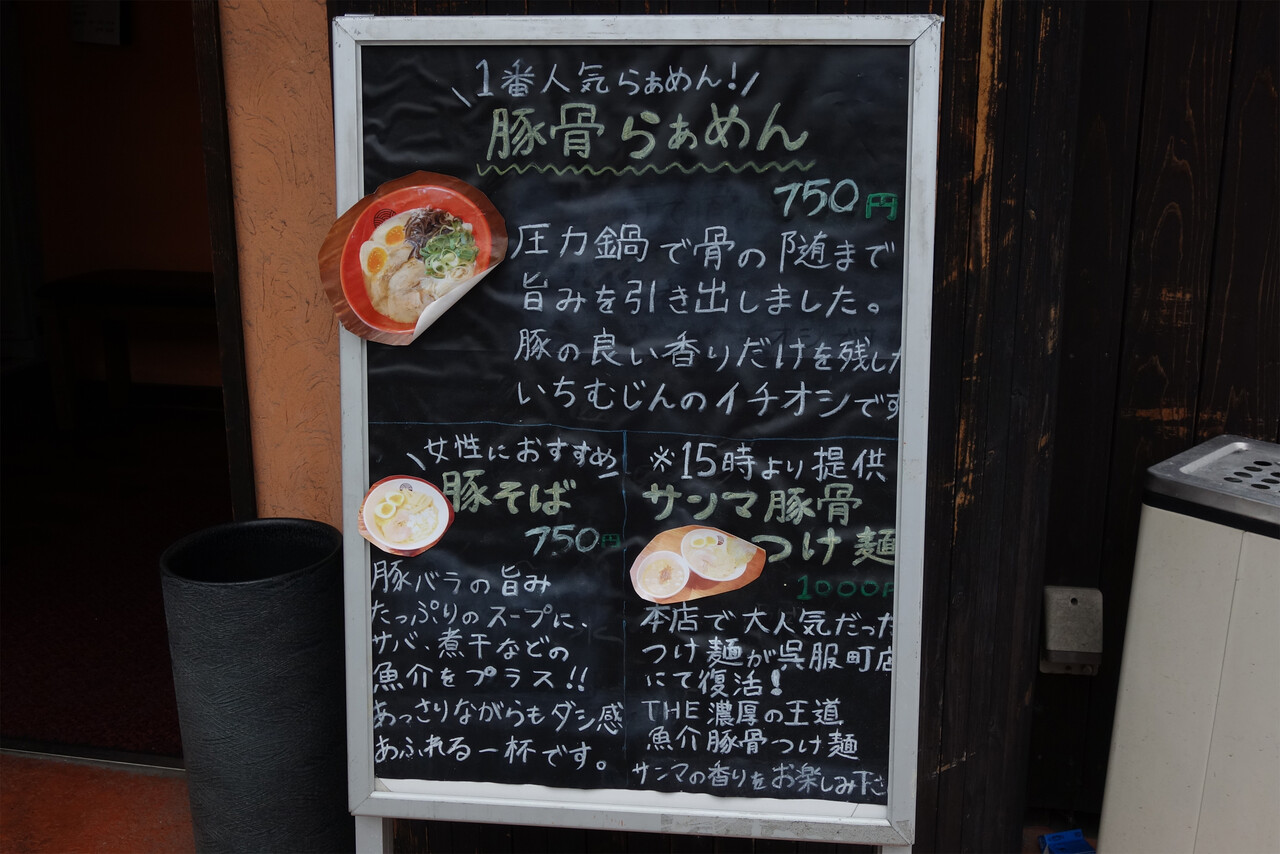 1番人気らぁめん!
豚骨らぁめん
750円
圧力鍋で骨の随まで
旨みを引き出しました。
豚の良い香りだけを残した
いちむじんのイチオシです
女性におすすめ
豚そば
750円
豚バラの旨み
たっぷりのスープに、
サバ、煮干などの
魚介をプラス!!
あっさりながらもダシ感
あふれる一杯です。
※15時より提供
サンマ豚骨
つけ麺
1000円
本店で大人気だった
つけ麺が呉服町店
にて復活!
THE濃厚の王道
魚介豚骨つけ麺
サンマの香りをお楽しみ下さ